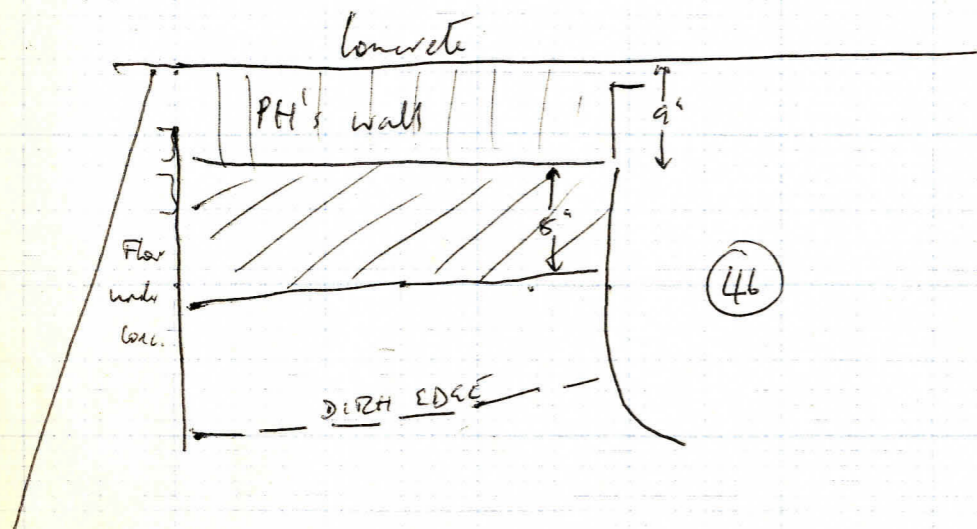 Concrete
PH's wall
9"
8"
Floor
under
conc.
46
DITCH EDGE